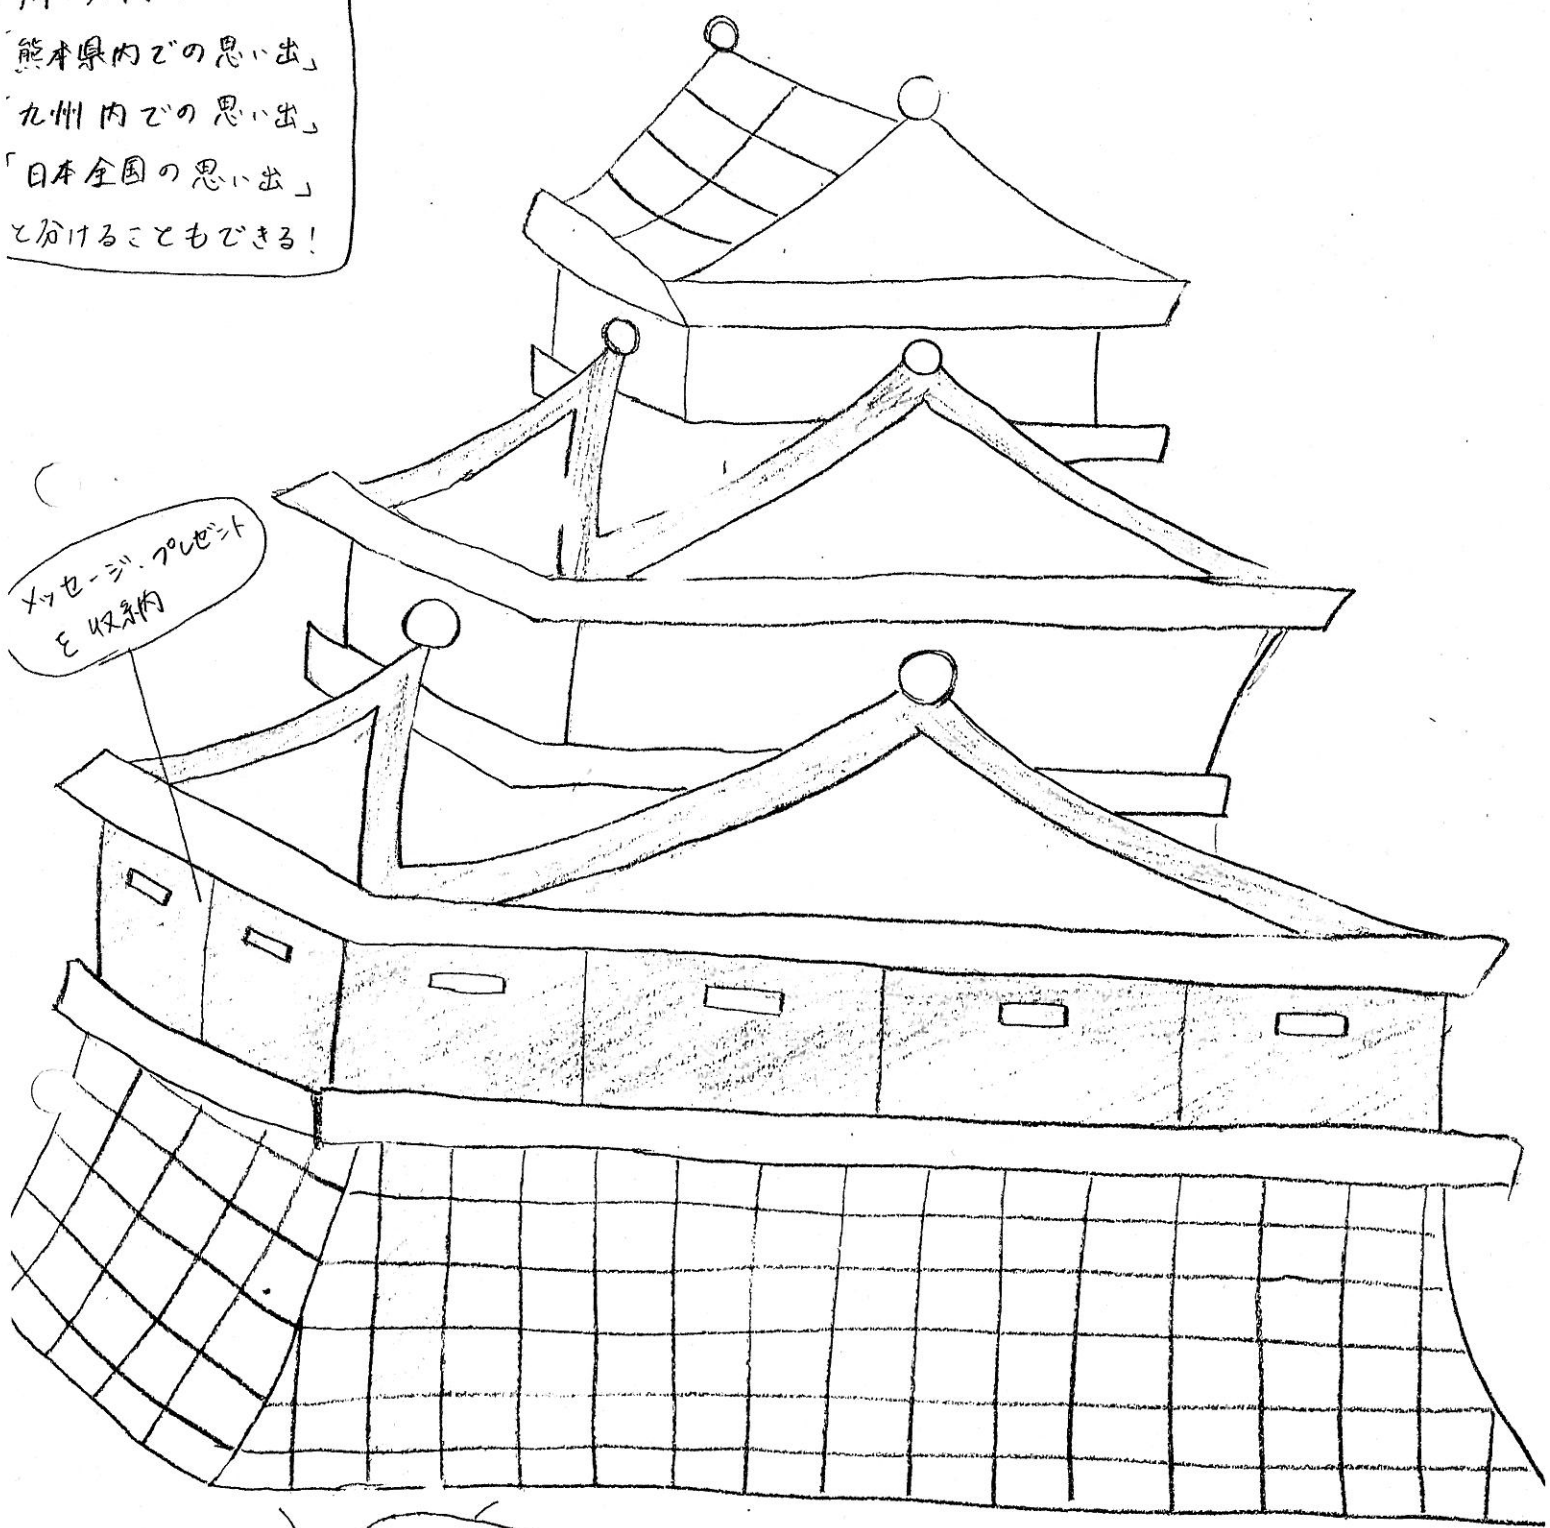 熊本県内での思い出」
「九州内での思い出」
「日本全国の思い出」
と分けることもできる!
メッセージ・プレゼント
を収納